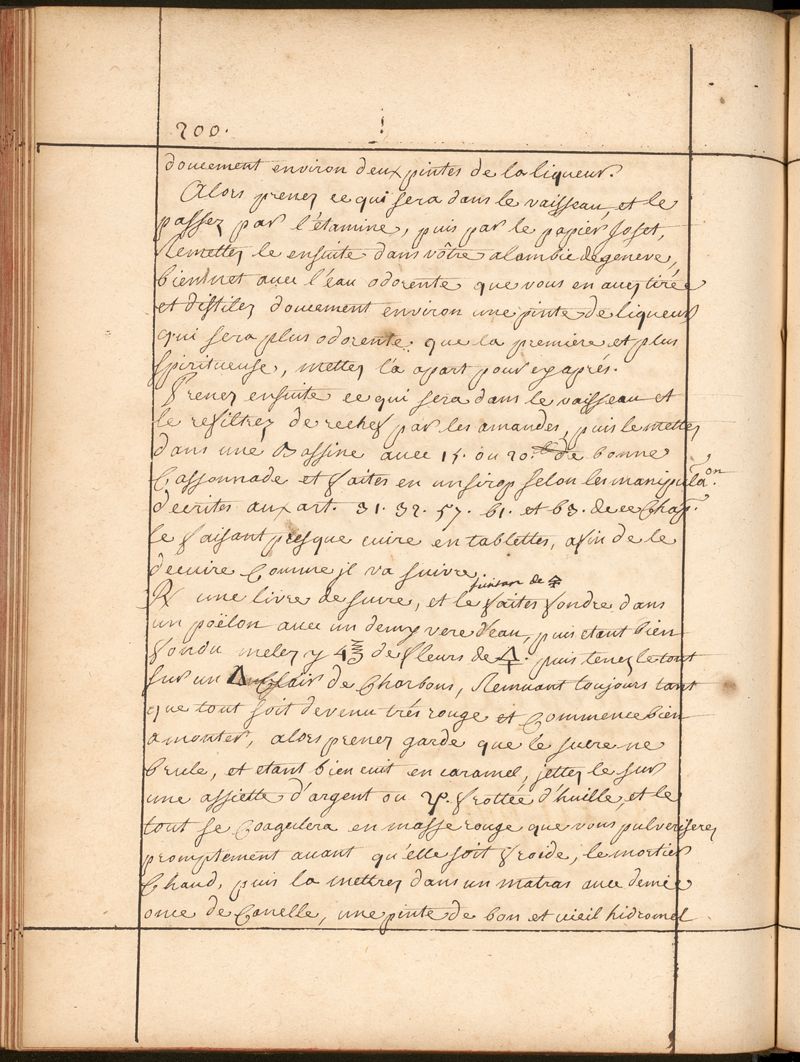 200.
doucement environ deux pintes de la liqueur.
Alors prenez ce qui sera dans le vaisseau, et le
passez par l'étamine, puis par le papier Josef,
Remettez le ensuite dans vôtre alambic de geneve,
bien net avec l'eau odorente que vous en avez tirée
et distilez doucement environ une pinte de liqueur
qui sera plus odorente que la premiere et plus
spiritueuse, mettez la apart pour cy aprés.
Prenez ensuite ce qui sera dans le vaisseau et
le refiltrez de rechef par les amandes, puis le mettez
dans une Bassine avec 15. ou 20. de bonne
Cassonnade et faites en un sirop selon les manipula.on
decrites aux art. 31. 32. 57. 61. et 63. de ce Chap.
le faisant presque cuire en tablettes, afin de le
decuire Comme jl va suivre.
teinture de 🜍
℞ une livre de sucre, et le faites fondre dans
un poëlon avec un demy vere d'eau, puis etant bien
fondu melez y 4 ℥ de fleurs de 🜍. puis tenez le tout
sur un 🜂 Clair de Charbons, Remuant toujours tant
que tout soit devenu trés rouge et Commence bien
a monter, alors prenez garde que le sucre ne
brule, et etant bien cuit en caramel, jettez le sur
une assiette d'argent ou ♃. frottée d'huille, et le
tout se Coagulera en masse rouge que vous pulveriserez
promptement avant qu'elle soit froide, le mortier
Chaud, puis la mettrez dans un matras avec demie
once de Canelle, une pinte de bon et vieil hidromel